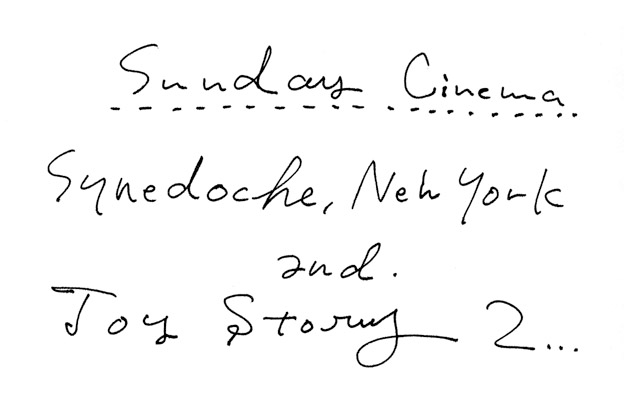 Sunday Cinema
Synedoche, New York
and.
Toy Story 2...